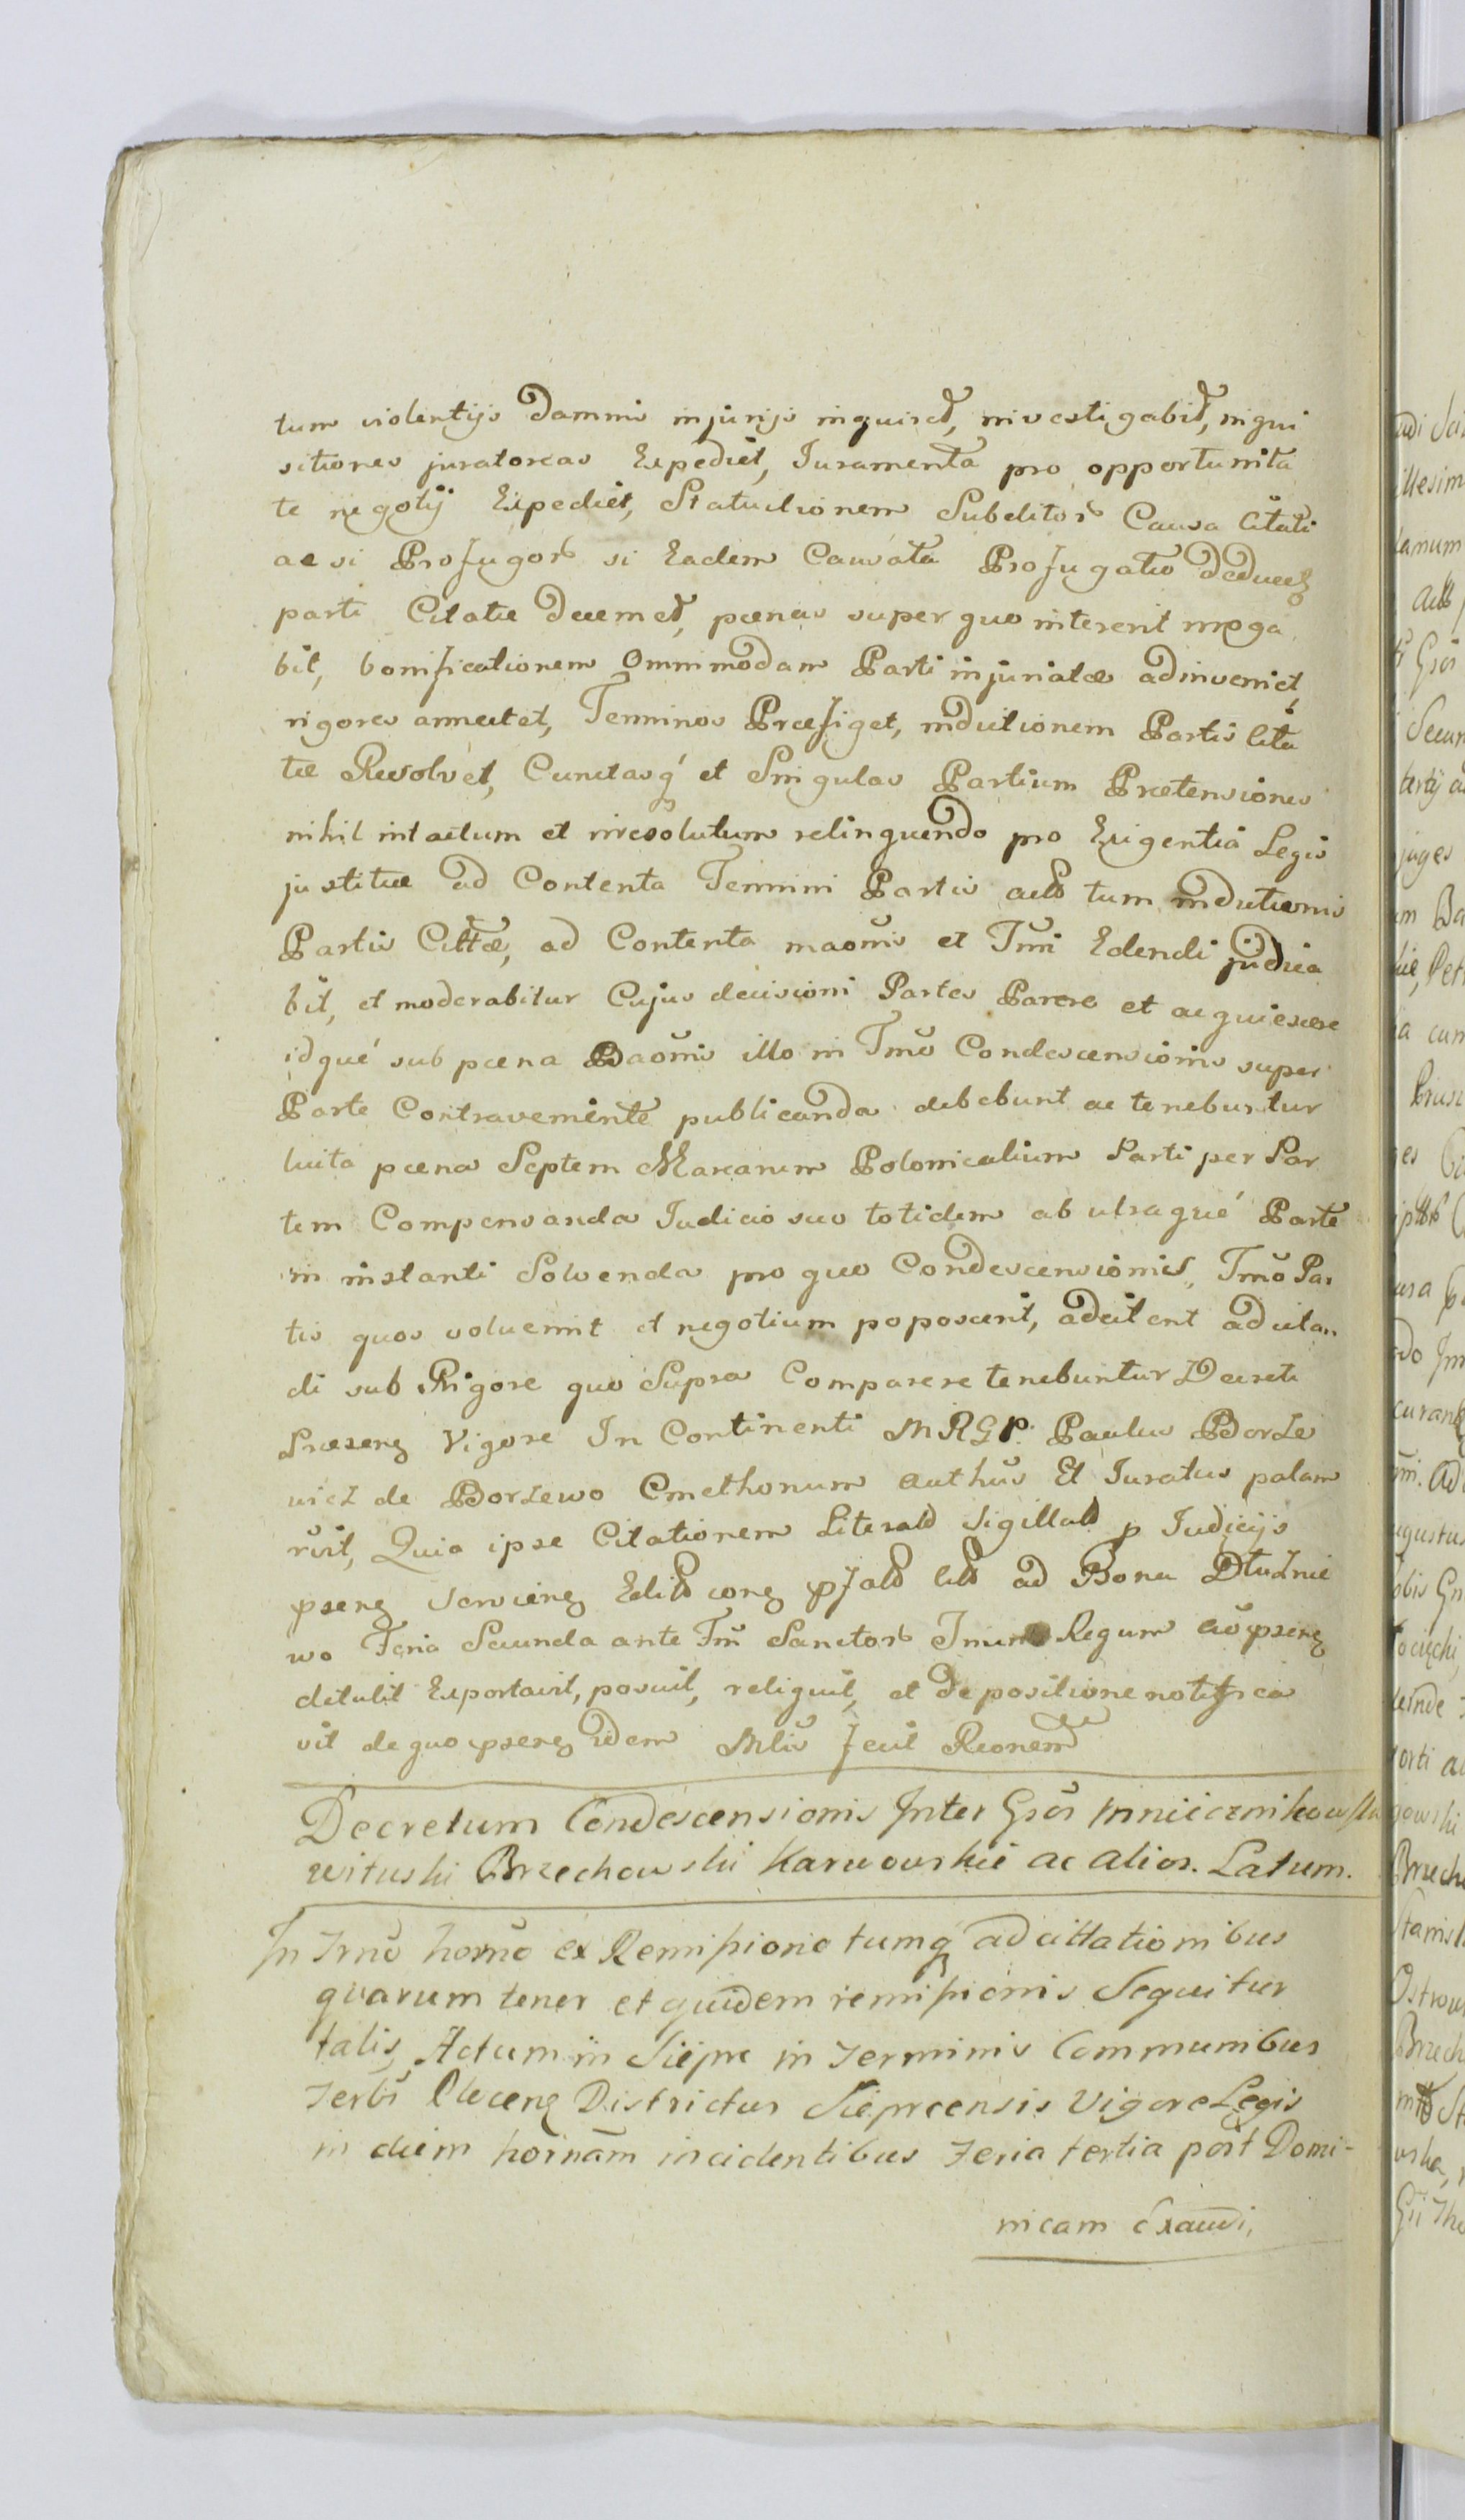 tum violentijs damnis injurijs inquiret, investigabit, inqui
sitiones juratoreas Expediet, Juramenta pro opportunita
te negotij Expediet, Statuitionem Subditor Causa Citati
ac si Profugor si Eadem Causata Profugatio deducetz
parti Citatæ decernet, pænas super quo intererit irroga
bit, bonificationem Omnimodam Parti injuriatæ adinveniet,
rigores annectet, Terminos Præfiget, inductionem Partis Cita
tæ Resolvet, Cunctasq et Singulas Partium Prætensiones
nihil intactum et irresolutum relinquendo pro Exigentia Legis
justitiæ ad Contenta Termini Partis act tum inductionis
Partis Cittæ, ad Contenta maonis et Tmi Edendi judica
bit, et moderabitur Cujus decisioni Partes Parere et acquiescere
idque sub pæna Baonis illo in Tmo Condescensionis super
Parte Contraveniente publicanda debebunt ac tenebuntur
luita pæna Septem Marcarum Polonicalium Parti per Par
tem Compensanda Judicio suo totidem ab utraque Parte
in instanti Solvenda pro quo Condescensionis Tmo Par
tes quos voluerint et negotium poposcerit, adcitent adcitan
di sub Rigore quo Supra Comparere tenebuntur Decreti
Præsenz Vigore In Continenti MRGP. Paulus Borze
wicz de Borzewo Cmethonum authus Et Juratus palam
rvit, Quia ipse Citationem Literal Sigillat p Judicijs
psenz Servienz Edit conz pfat Citt ad Bona Dłużnie
wo Feria Secunda ante Fm Sanctor Trium Regum ao psenz
detulit Exportavit, posuit, reliquit, et de positione notifica
vit de quo psenz idem Mlis fecit Reonem
Decretum Condescensionis Inter Gros
wituski Brzechowski Karwowskie ac alios. Latum.
In Tmo horno ex Remissione tumq adcittationibus
quarum tenor et quidem remissionis Sequitur
talis, Actum in Siepre in Terminis Communibus
Terbr Districtus Sieprcensis Vigore Legis
in diem hoirnam incidentibus Feria tertia post Domi-
nicam Exaudi,